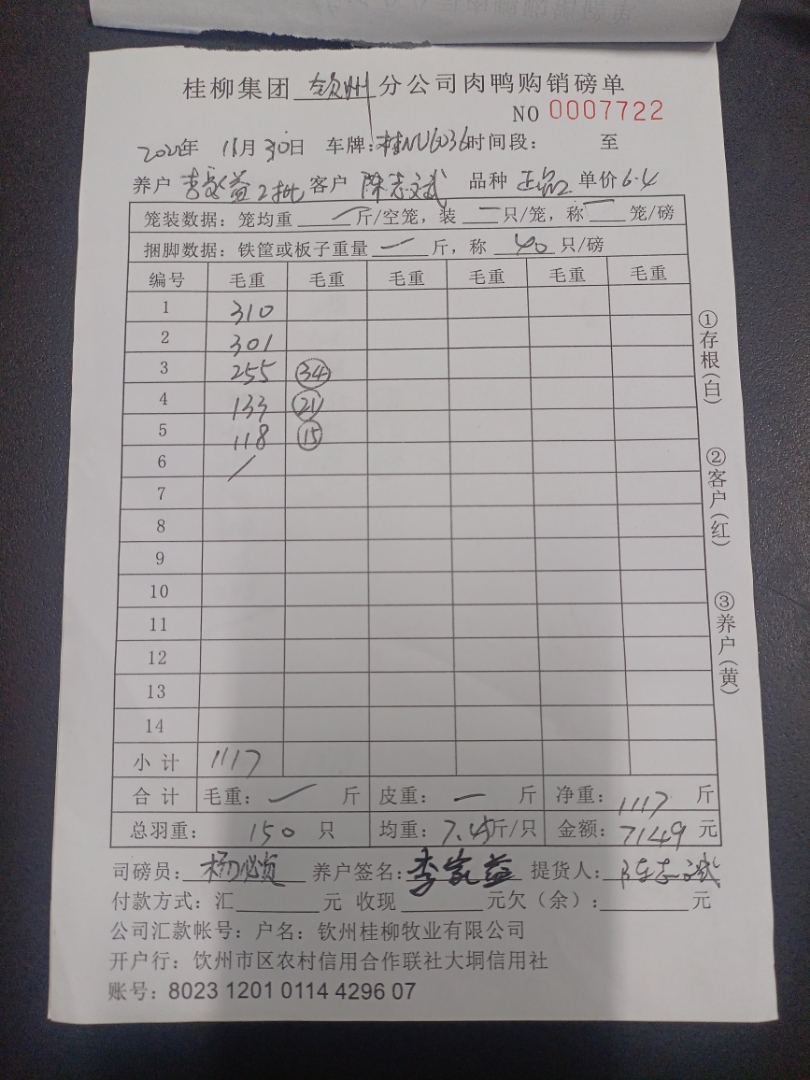 桂柳集团 钦州 分公司肉鸭购销磅单
NO 0007722
年 11月30日 车牌:桂NU6036 时间段: 至
养户 李家益2批 客户 陈志斌 品种 正品 单价 6.4
笼装数据:笼均重 一 斤/空笼,装 一 只/笼,称 一 笼/磅
捆脚数据:铁筐或板子重量 一 斤,称 40 只/磅
编号 毛重 毛重 毛重 毛重 毛重 毛重
1 310
2 301
3 255 34
4 133 21
5 118 15
6 /
7
8
9
10
11
12
13
14
小计 1117
合计 毛重: 一 斤 皮重: 一 斤 净重: 1117 斤
总羽重: 150 只 均重: 7.45 斤/只 金额: 7149 元
司磅员: 养户签名: 李家益 提货人: 陈志斌
付款方式:汇 元 收现 元欠(余): 元
公司汇款帐号:户名:钦州桂柳牧业有限公司
开户行:饮州市区农村信用合作联社大垌信用社
账号:8023 1201 0114 4296 07
①存根(白)
②客户(红)
③养户(黄)